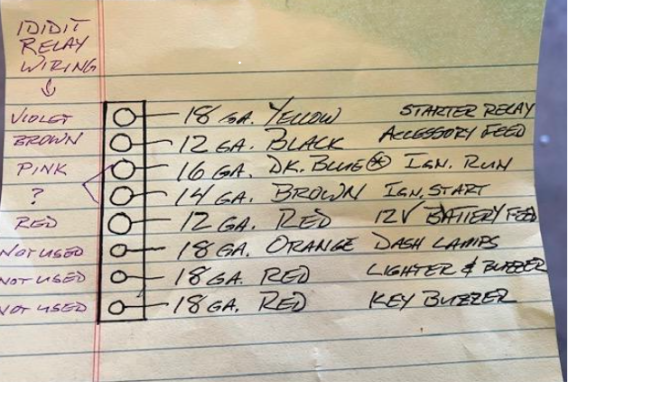 IDIDIT
RELAY
WIRING
VIOLET 18 GA. YELLOW STARTER RELAY
BROWN 12 GA. BLACK ACCESSORY FEED
PINK 16 GA. DK. BLUE * IGN. RUN
? 14 GA. BROWN IGN. START
RED 12 GA. RED 12V BATTERY FEED
NOT USED 18 GA. ORANGE DASH LAMPS
NOT USED 18 GA. RED LIGHTER & BUZZER
NOT USED 18 GA. RED KEY BUZZER